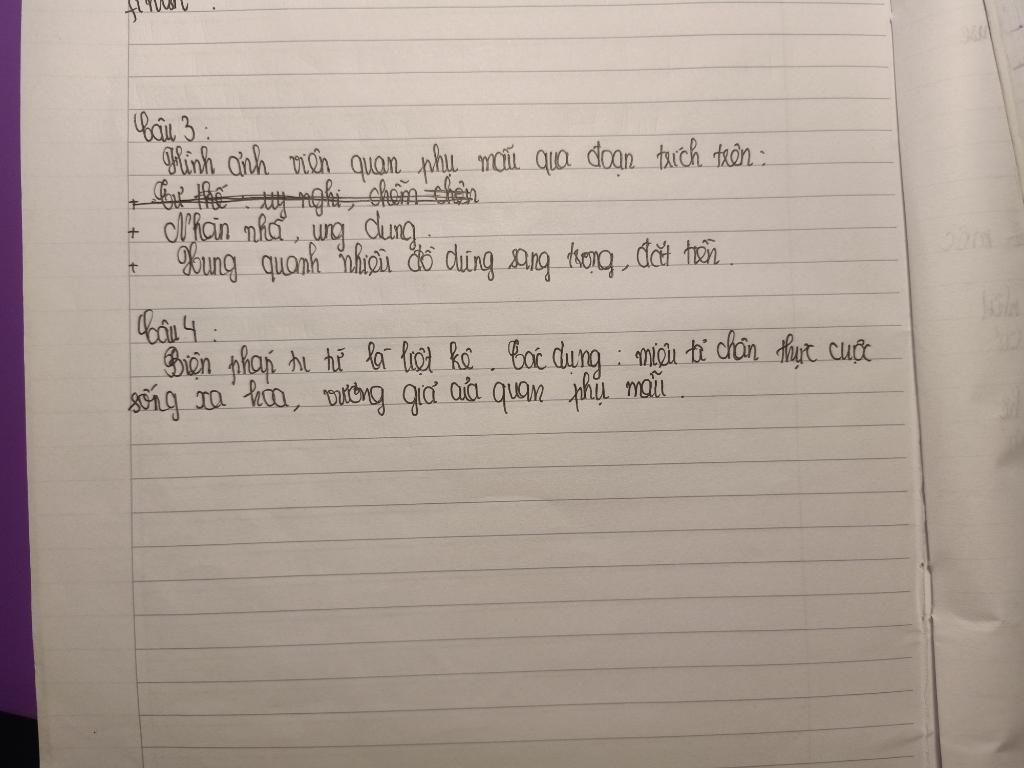 Câu 3 :
Hình ảnh viên quan phụ mẫu qua đoạn trích trên :
+ Tư thế uy nghi, chễm chện
+ Nhàn nhã, ung dung.
+ Xung quanh nhiều đồ dùng sang trọng, đắt tiền.
Câu 4 :
Biện pháp tu từ là liệt kê. Tác dụng : miêu tả chân thực cuộc
sống xa hoa, vương giả của quan phụ mẫu.